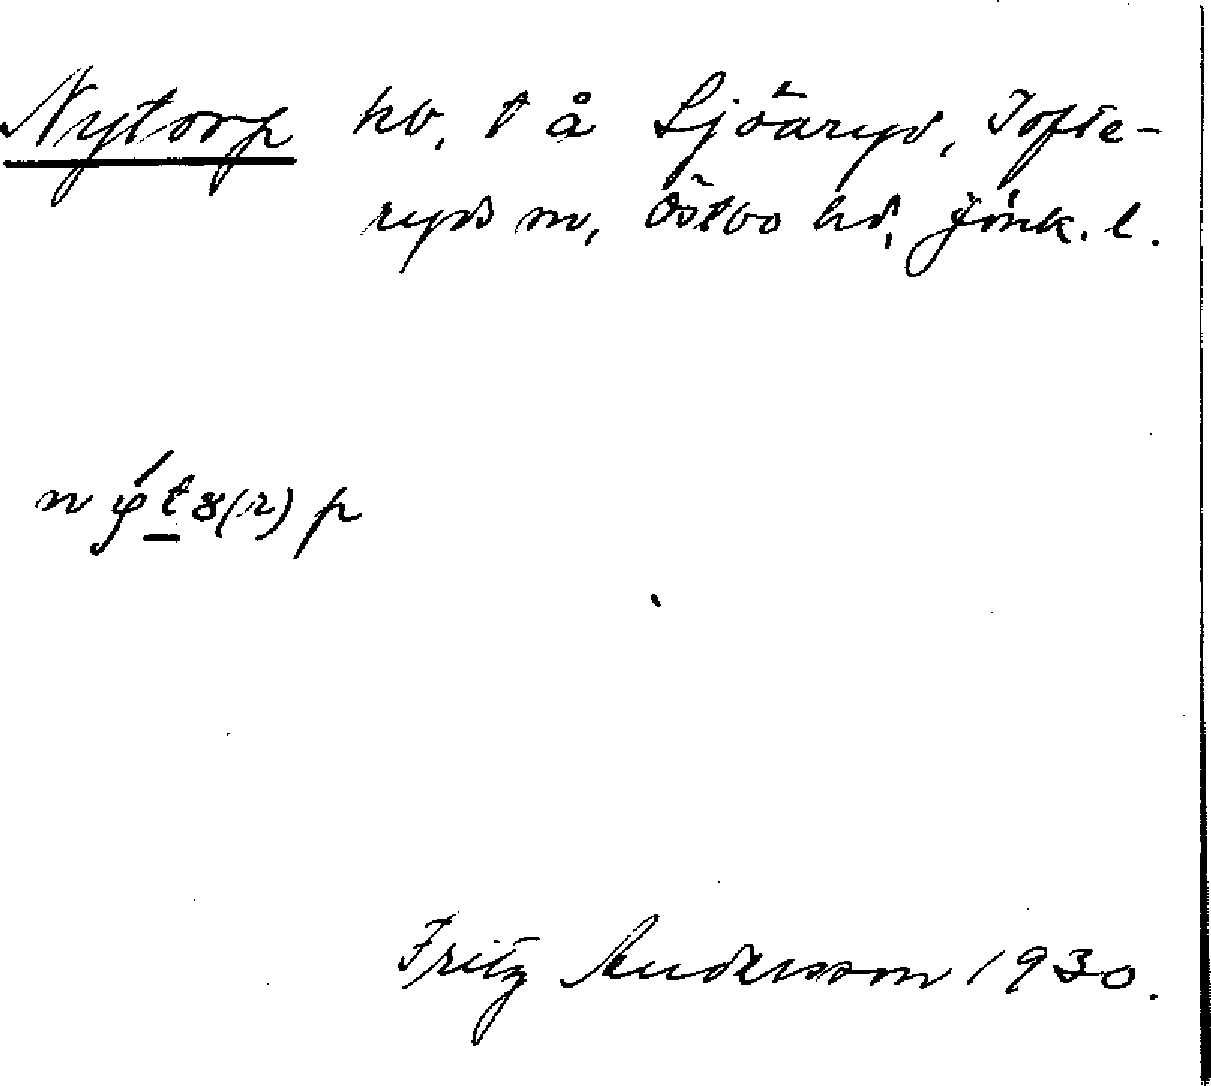 Nytorp hv. t å Sjöaryd, Tofte-
ryds sn, Östbo hd, Jönk. l.
Fritz Andersson 1930.